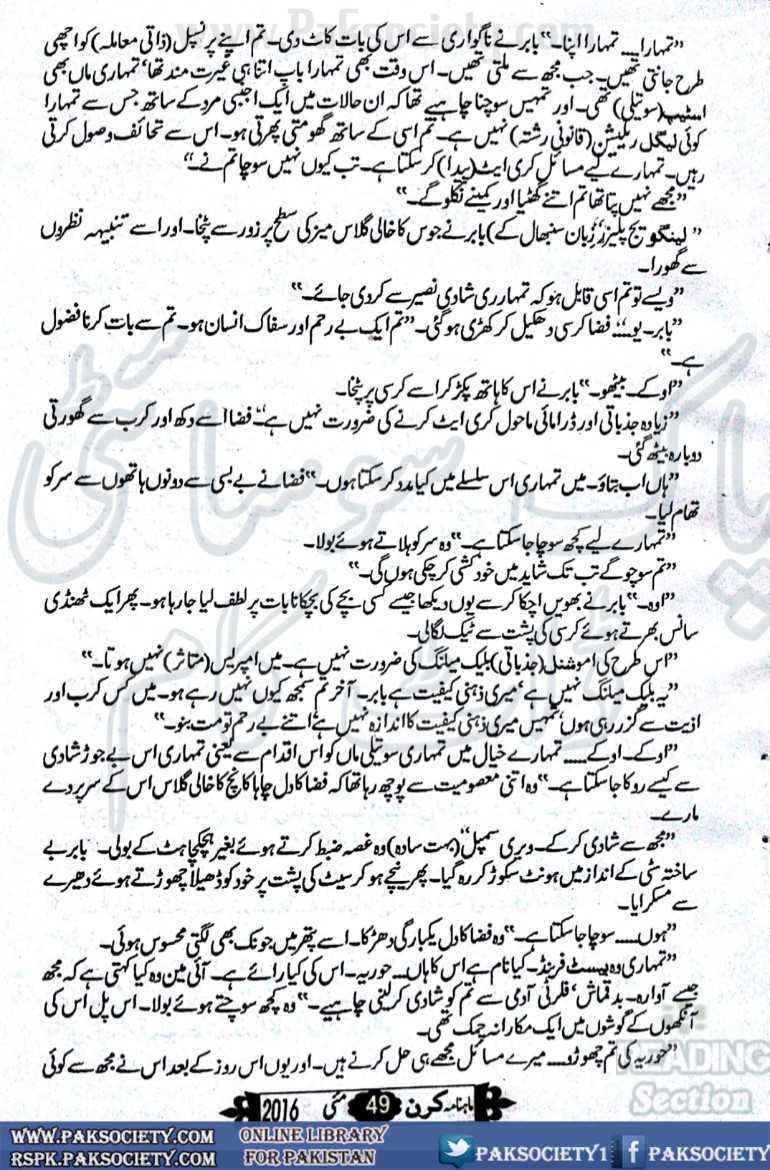 www.Paksociety.com
”تمہارا.... تمہارا اپنا۔“ بابر نے ناگواری سے اس کی بات کاٹ دی۔ تم اپنے پرنسپل (ذاتی معاملہ) کو اچھی
طرح جانتی تھیں۔ جب مجھ سے ملتی تھیں۔ اس وقت بھی تمہارا باپ اتنا ہی غیرت مند تھا، تمہاری ماں بھی
اسٹیپ (سوتیلی) تھی۔ اور تمہیں سوچنا چاہیے تھا کہ ان حالات میں ایک اجنبی مرد کے ساتھ جس سے تمہارا
کوئی لیگل ریلیشن (قانونی رشتہ) نہیں ہے۔ تم اسی کے ساتھ گھومتی پھرتی ہو۔ اس سے تحائف وصول کرتی
رہیں۔ تمہارے لیے مسائل کری ایٹ (پیدا) کر سکتا ہے۔ تب کیوں نہیں سوچا تم نے۔“
”مجھے نہیں پتا تھا تم اتنے گھٹیا اور کمینے نکلو گے۔“
”لینگویج پلیز (زبان سنبھال کے) بابر نے جوس کا خالی گلاس میز کی سطح پر زور سے پٹخا۔ اور اسے تنبیہہ نظروں
سے گھورا۔
”ویسے تو تم اسی قابل ہو کہ تمہاری شادی نصیر سے کر دی جائے۔“
”بابر۔ یو....“ فضا کرسی دھکیل کر کھڑی ہو گئی۔ ”تم ایک بے رحم اور سفاک انسان ہو۔ تم سے بات کرنا فضول
ہے۔“
”اوکے۔ بیٹھو۔“ بابر نے اس کا ہاتھ پکڑ کر اسے کرسی پر پٹخا۔
”زیادہ جذباتی اور ڈرامائی ماحول کری ایٹ کرنے کی ضرورت نہیں ہے۔“ فضا اسے دکھ اور کرب سے گھورتی
دوبارہ بیٹھ گئی۔
”ہاں اب بتاؤ۔ میں تمہاری اس سلسلے میں کیا مدد کر سکتا ہوں۔“ فضا نے بے بسی سے دونوں ہاتھوں سے سر کو
تھام لیا۔
”تمہارے لیے کچھ سوچا جا سکتا ہے۔“ وہ سر کو ہلاتے ہوئے بولا۔
”تم سوچو گے تب تک شاید میں خود کشی کر چکی ہوں گی۔“
”اوہ۔“ بابر نے بھویں اچکا کر اسے یوں دیکھا جیسے کسی بچے کی بچکانا بات پر لطف لیا جا رہا ہو۔ پھر ایک ٹھنڈی
سانس بھرتے ہوئے کرسی کی پشت سے ٹیک لگالی۔
”اس طرح کی اموشنل (جذباتی) بلیک میلنگ کی ضرورت نہیں ہے۔ میں امپریس (متاثر) نہیں ہوتا۔“
”یہ بلیک میلنگ نہیں ہے، میری ذہنی کیفیت ہے بابر۔ آخر تم سمجھ کیوں نہیں رہے ہو۔ میں کس کرب اور
اذیت سے گزر رہی ہوں، تمہیں میری ذہنی کیفیت کا اندازہ نہیں ہے، اتنے بے رحم تو مت بنو۔“
”اوکے۔ اوکے.... تمہارے خیال میں تمہاری سوتیلی ماں کو اس اقدام سے یعنی تمہاری اس بے جوڑ شادی
سے کیسے روکا جا سکتا ہے۔“ وہ اتنی معصومیت سے پوچھ رہا تھا کہ فضا کا دل چاہا کانچ کا خالی گلاس اس کے سر پر دے
مارے۔
”مجھ سے شادی کر کے۔ ویری سمپل“ (بہت سادہ) وہ غصہ ضبط کرتے ہوئے بغیر ہچکچاہٹ کے بولی۔ بابر بے
ساختہ سٹی کے انداز میں ہونٹ سکوڑ کر رہ گیا۔ پھر نیچے ہو کر سیٹ کی پشت پر خود کو ڈھیلا چھوڑتے ہوئے دھیرے
سے مسکرایا۔
”ہوں.... سوچا جا سکتا ہے۔“ وہ فضا کا دل یکبارگی دھڑکا۔ اسے پتھر میں جونک بھی لگتی محسوس ہوئی۔
”تمہاری وہ بیسٹ فرینڈ۔ کیا نام ہے اس کا ہاں.... حوریہ۔ اس کی کیا رائے ہے۔ آئی مین وہ کیا کہتی ہے کہ مجھ
جیسے آوارہ۔ بدقماش، فلرٹی آدمی سے تم کو شادی کر لینی چاہیے۔“ وہ کچھ سوچتے ہوئے بولا۔ اس پل اس کی
آنکھوں کے گوشوں میں ایک مکارانہ چمک تھی۔
”حوریہ کی تم چھوڑو.... میرے مسائل مجھے ہی حل کرنے ہیں۔ اور یوں اس روز کے بعد اس نے مجھ سے کوئی
پاک سوسائٹی
ڈاٹ کام
READING
Section
ماہنامہ کرن 49 مئی 2016
WWW.PAKSOCIETY.COM
RSPK.PAKSOCIETY.COM
ONLINE LIBRARY
FOR PAKISTAN
PAKSOCIETY1
PAKSOCIETY